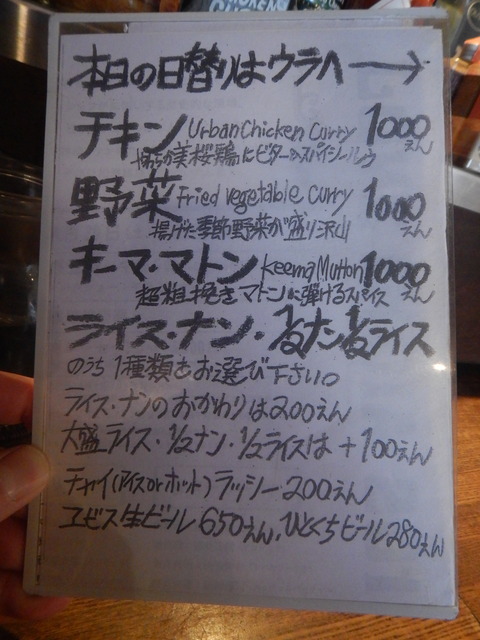 本日の日替りはウラへ→
チキン Urban Chicken Curry 1000えん
やわらか美桜鶏にビターなスパイシールウ
野菜 Fried vegetable Curry 1000えん
揚げた季節野菜が盛り沢山
キーマ・マトン Keema Mutton 1000えん
超粗挽きマトンに弾けるスパイス
ライス・ナン・½ナン½ライス
のうち1種類をお選び下さい。
ライス・ナンのおかわりは200えん
大盛ライス・½ナン・½ライスは+100えん
チャイ(アイスorホット)ラッシー200えん
ヱビス生ビール650えん、ひとくちビール280えん